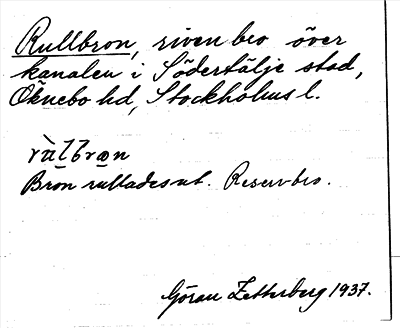 Rullbron, riven bro över
kanalen i Södertälje stad,
Öknebo hd, Stockholms l.
Bron rullades ut. Reservbro.
Göran Zetterberg 1937.